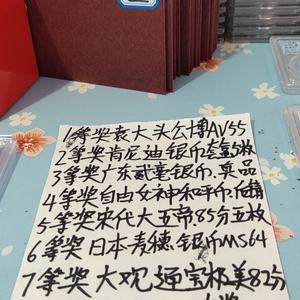 1等奖袁大头公博AV55
2等奖肯尼迪银币套5枚
3等奖广东贰毫银币.真品
4等奖自由女神和平币
5等奖宋代大五帝85分五枚
6等奖日本麦穗银币MS64
7等奖大观通宝极美82分